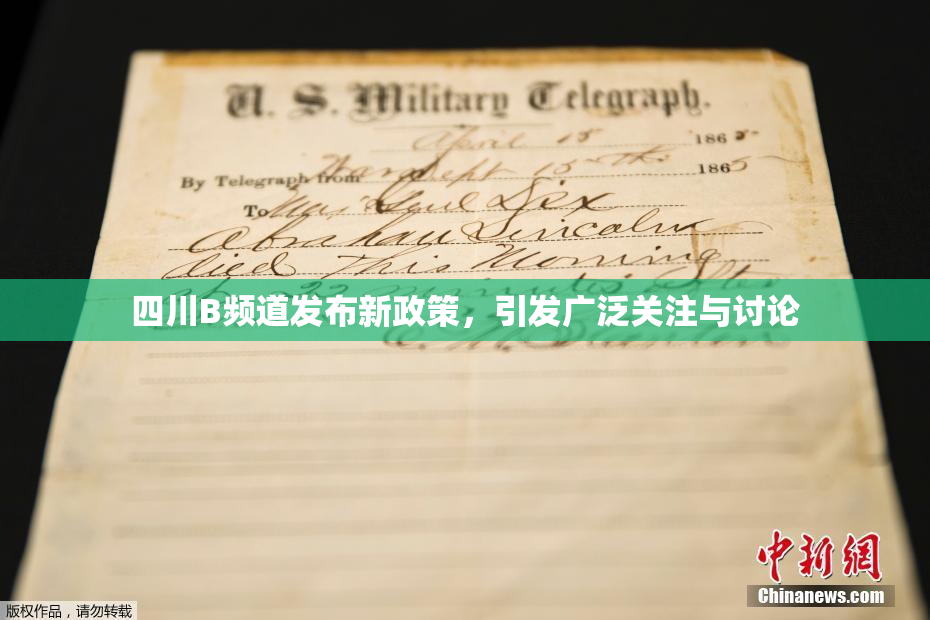 U. S. Military Telegraph.
April 15 1865
By Telegraph from War Dept 15th 1865
To Maj Genl Dix
Abraham Lincoln
died This Morning
22 minutes after
四川B频道发布新政策，引发广泛关注与讨论
中新网
Chinanews.com
版权作品，请勿转载